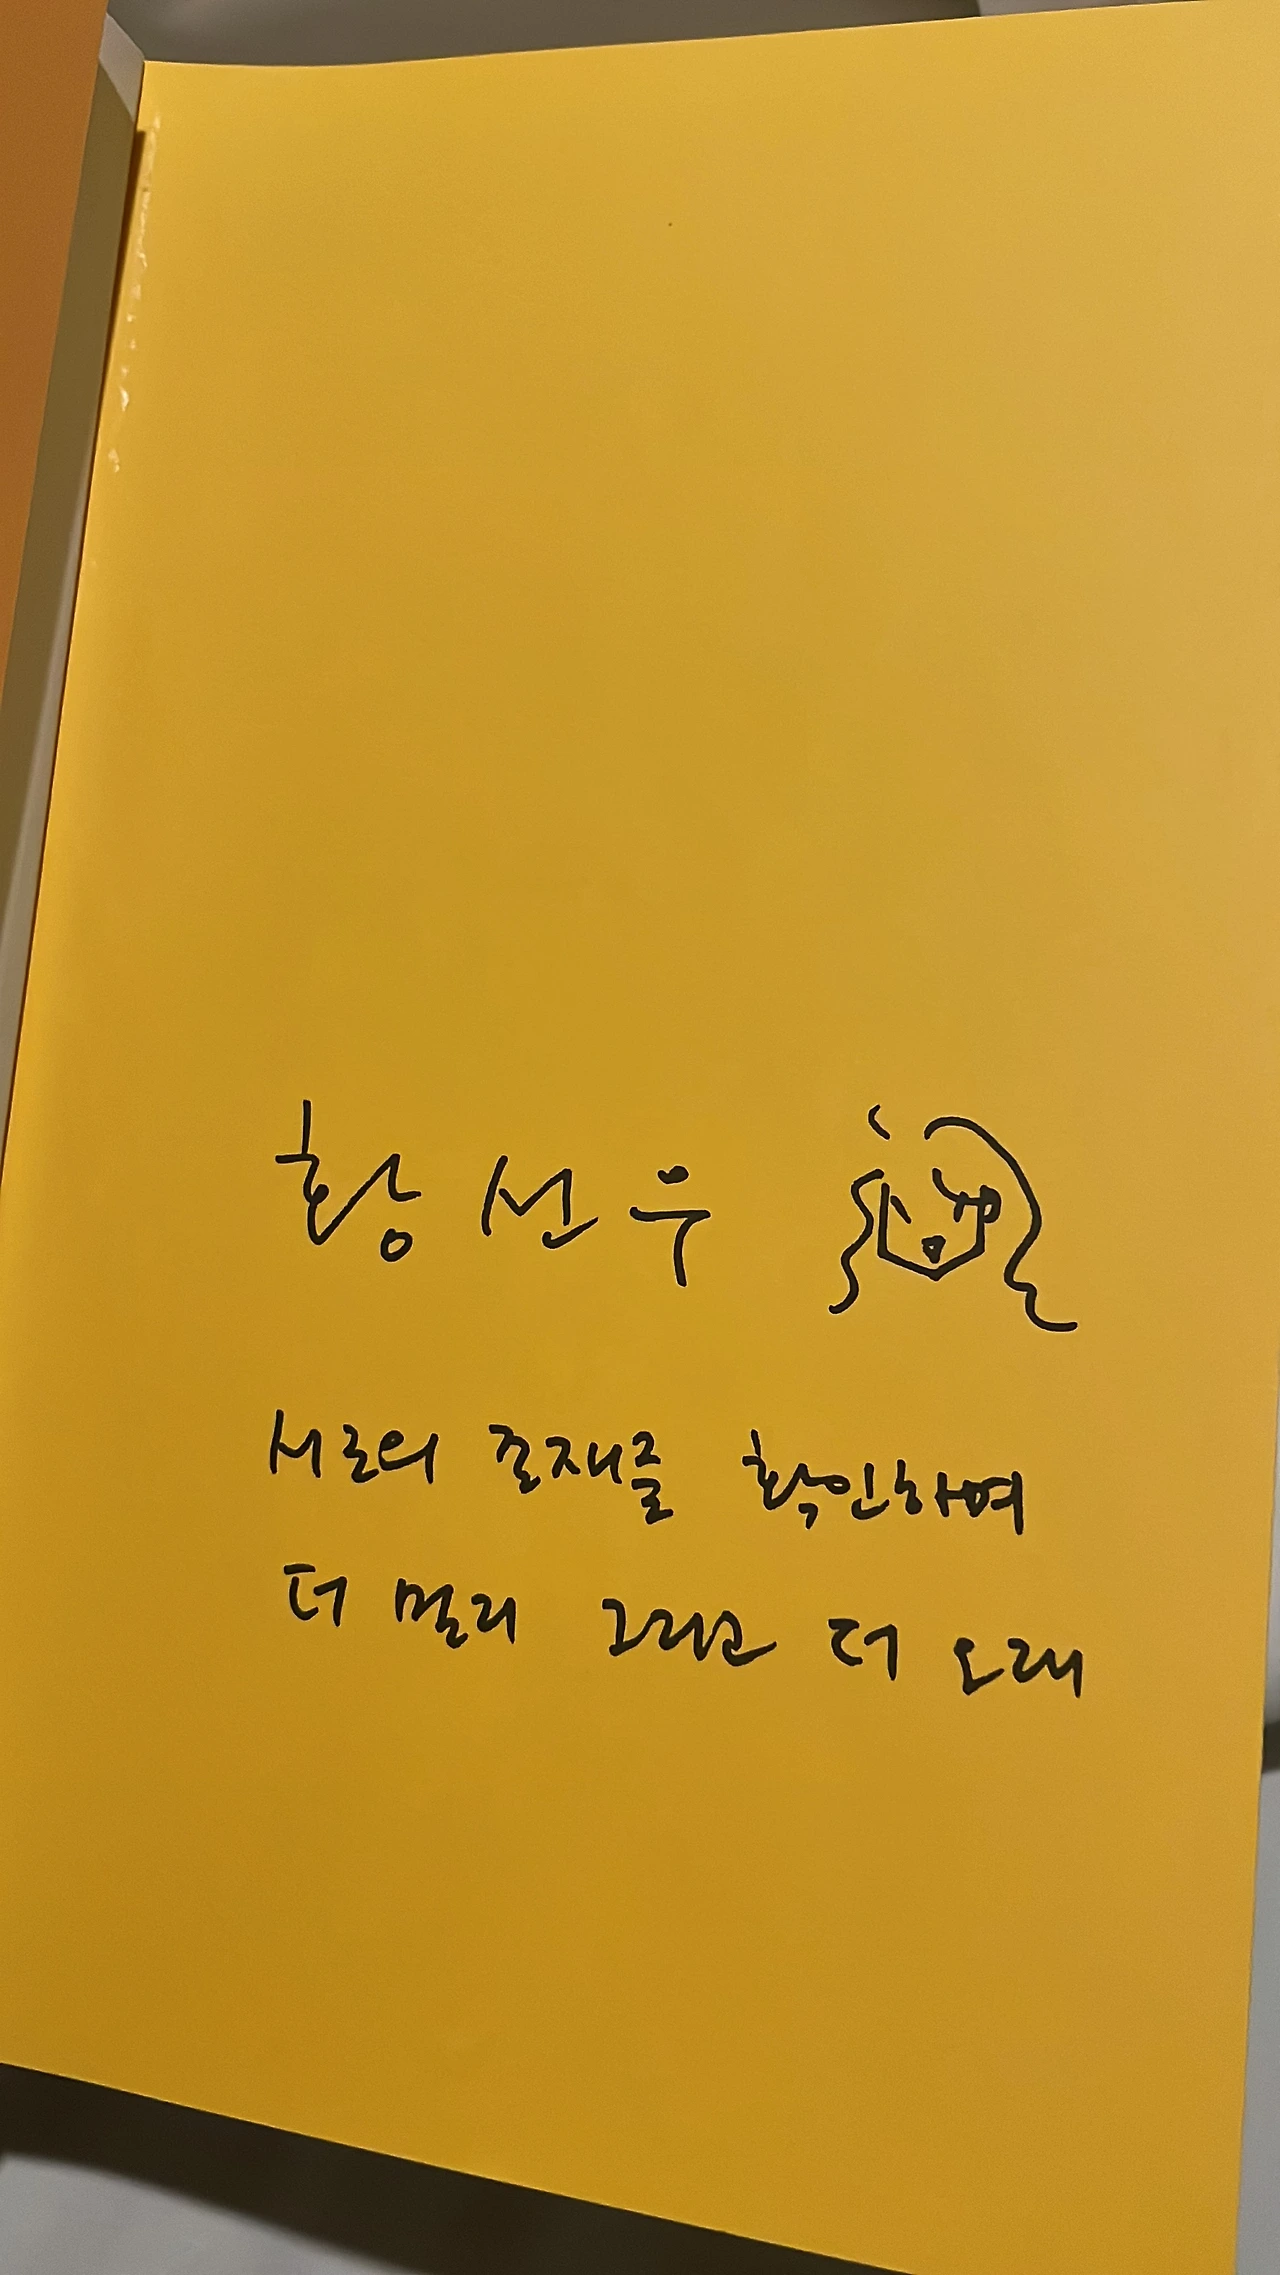 황선우
서로의 존재를 확인하여
더 멀리 그리고 더 오래